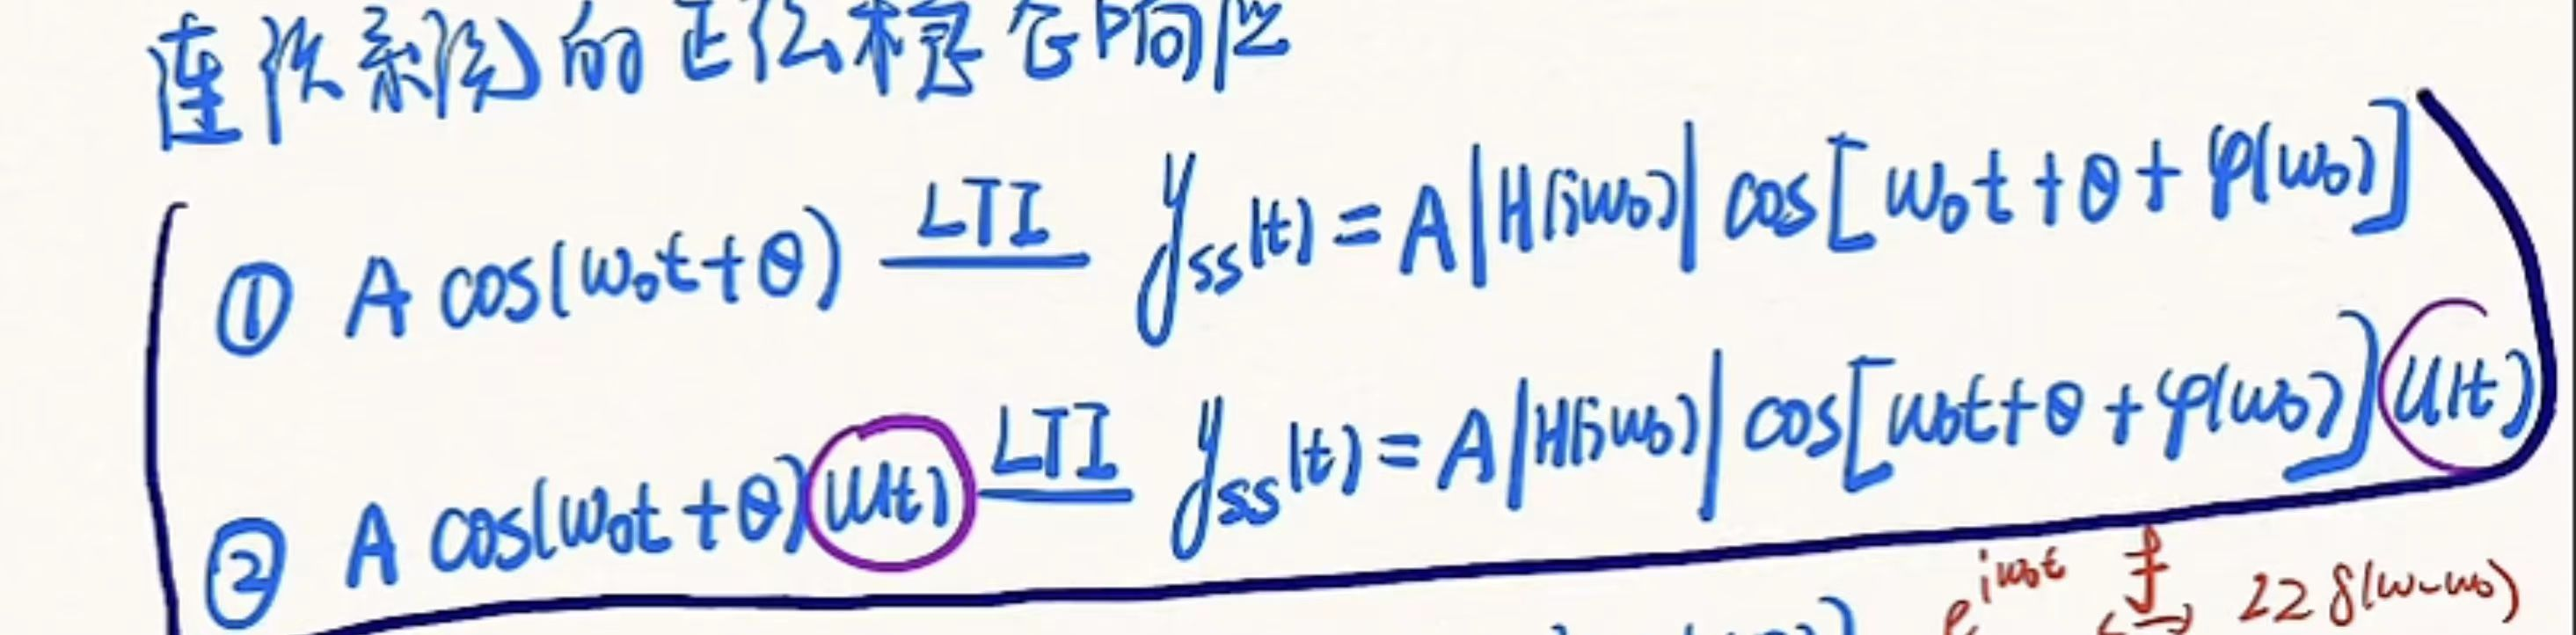 连续系统的正弦稳态响应
① A cos(ω₀t+θ) LTI y_ss(t) = A|H(jω₀)| cos[ω₀t+θ+φ(ω₀)]
② A cos(ω₀t+θ)u(t) LTI y_ss(t) = A|H(jω₀)| cos[ω₀t+θ+φ(ω₀)]u(t)
e^{jω₀t} ↔ 2π δ(ω-ω₀)